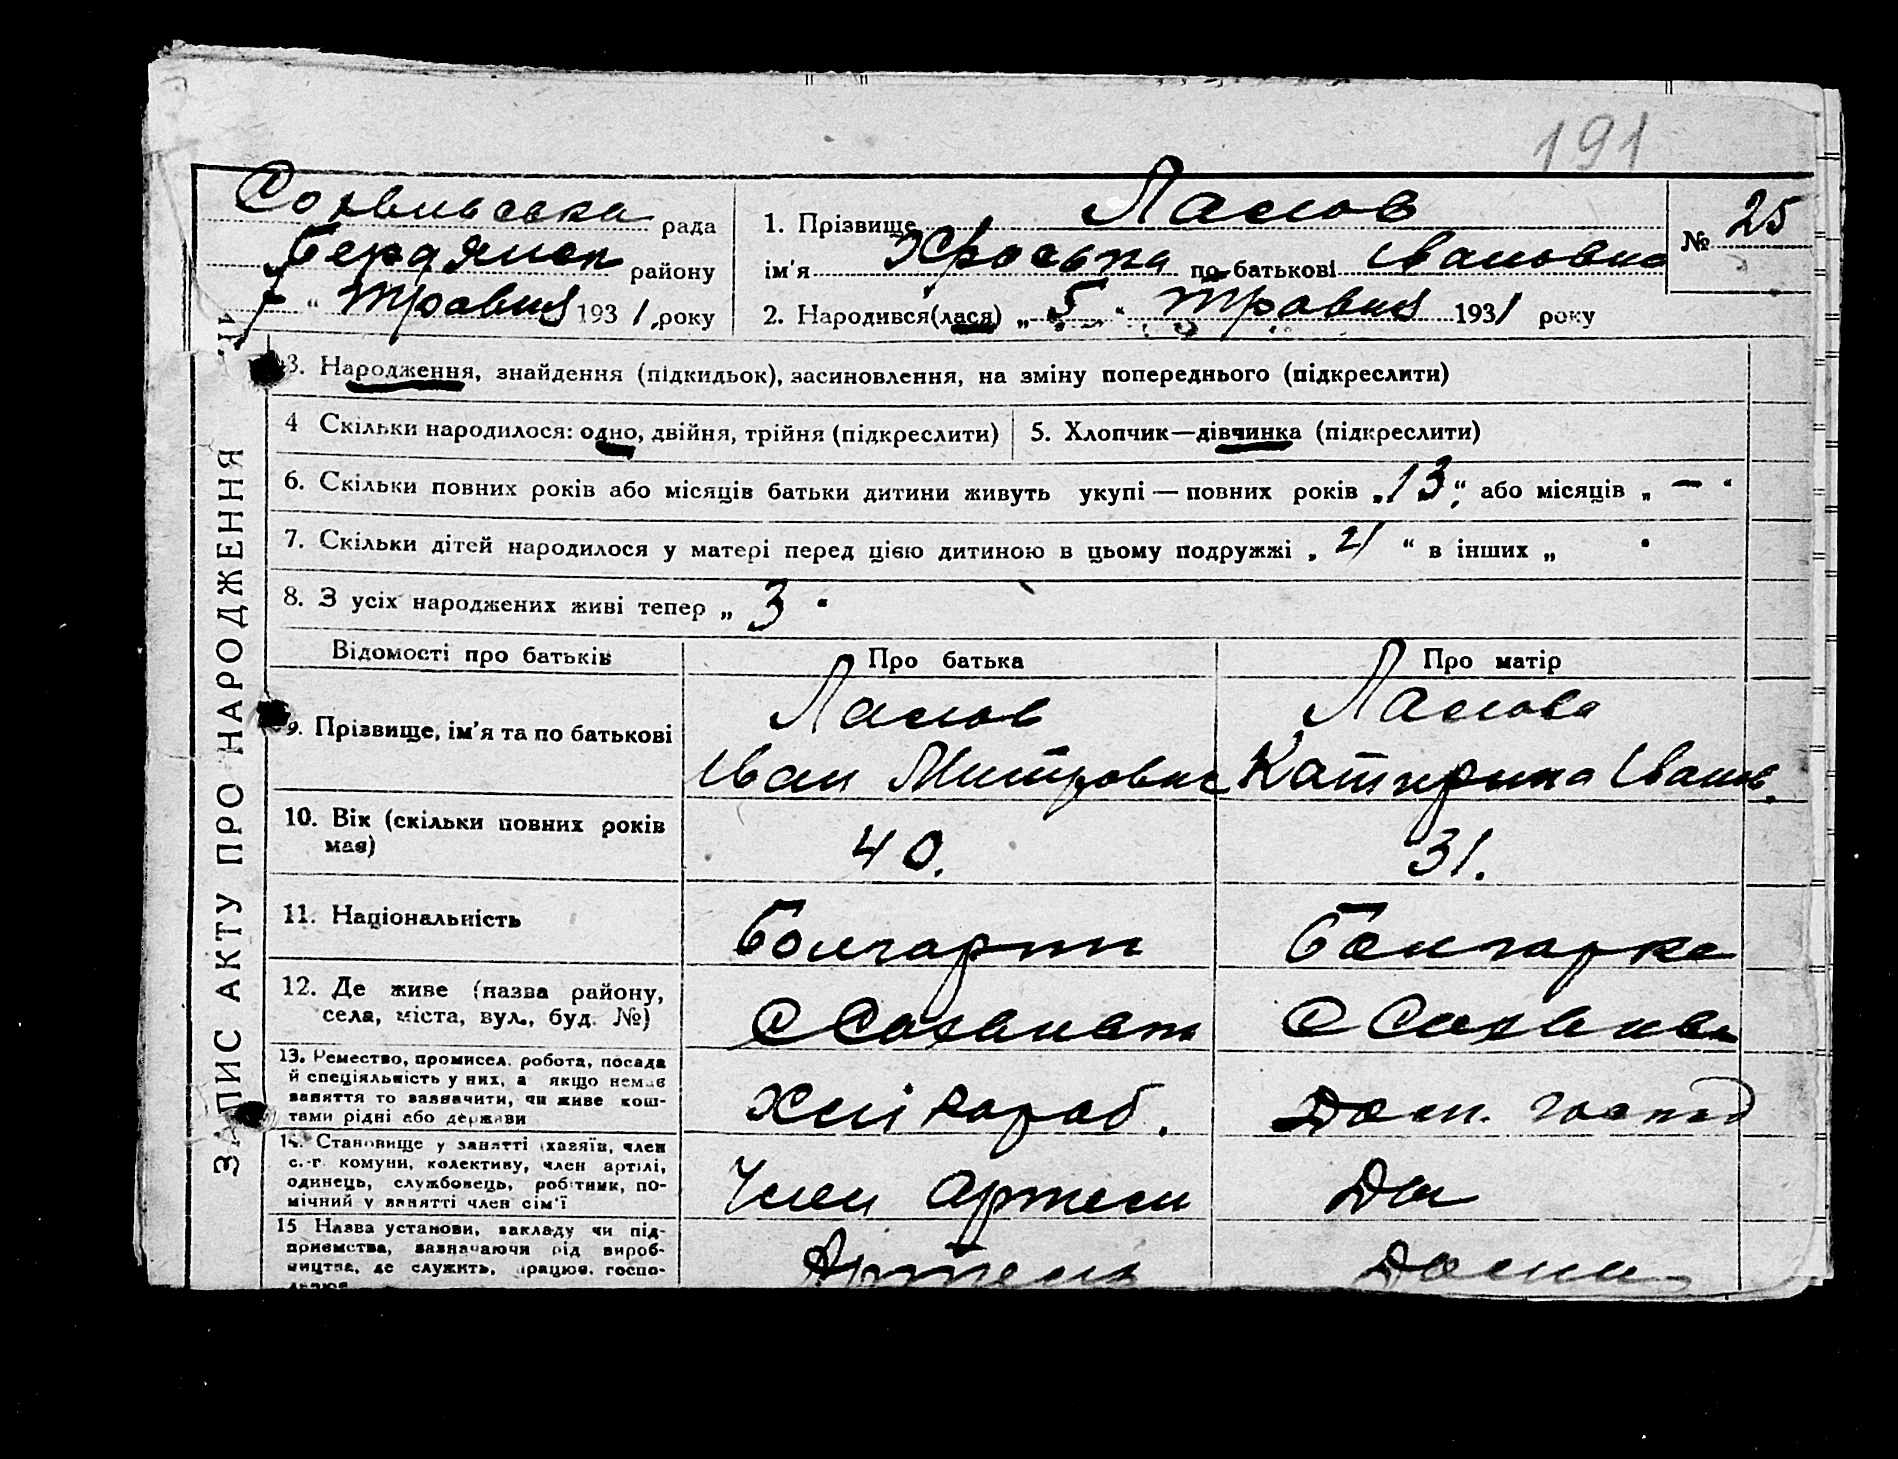 191
рада
Бердянск району
7 " травня 1931 року
1. Прізвище Ласков
ім'я по батькові Івановна
№ 25
2. Народився(лася) „ 5 " травня 1931 року
ЗАПИС АКТУ ПРО НАРОДЖЕННЯ
3. Народження, знайдення (підкидьок), засиновлення, на зміну попереднього (підкреслити)
4 Скільки народилося: одно, двійня, трійня (підкреслити)
5. Хлопчик—дівчинка (підкреслити)
6. Скільки повних років або місяців батьки дитини живуть укупі — повних років „ 13 “, або місяців „ — “
7. Скільки дітей народилося у матері перед цією дитиною в цьому подружжі „ “ в інших „ “
8. З усіх народжених живі тепер „ 3 “
Відомості про батьків
Про батька
Про матір
9. Прізвище, ім'я та по батькові
Іван Митрович
Катерина Іванов.
10. Вік (скільки повних років
має)
40.
31.
11. Національність
Болгарин
Болгарка
12. Де живе (назва району,
села, міста, вул., буд. №)
13. Ремество, промисел, робота, посада
й спеціяльність у них, а якщо немає
заняття то зазначити, чи живе кош-
тами рідні або держави
Хлібороб.
Дом. господ
14. Становище у занятті (хазяїн, член
с.-г. комуни, колективу, член артілі,
одинець, службовець, робітник, по-
мічний у занятті член сім'ї
Член артели
15 Назва установи, закладу чи під-
приємства, зазначаючи рід вироб-
ництва, де служить, працює, госпо-
дарює
Артель